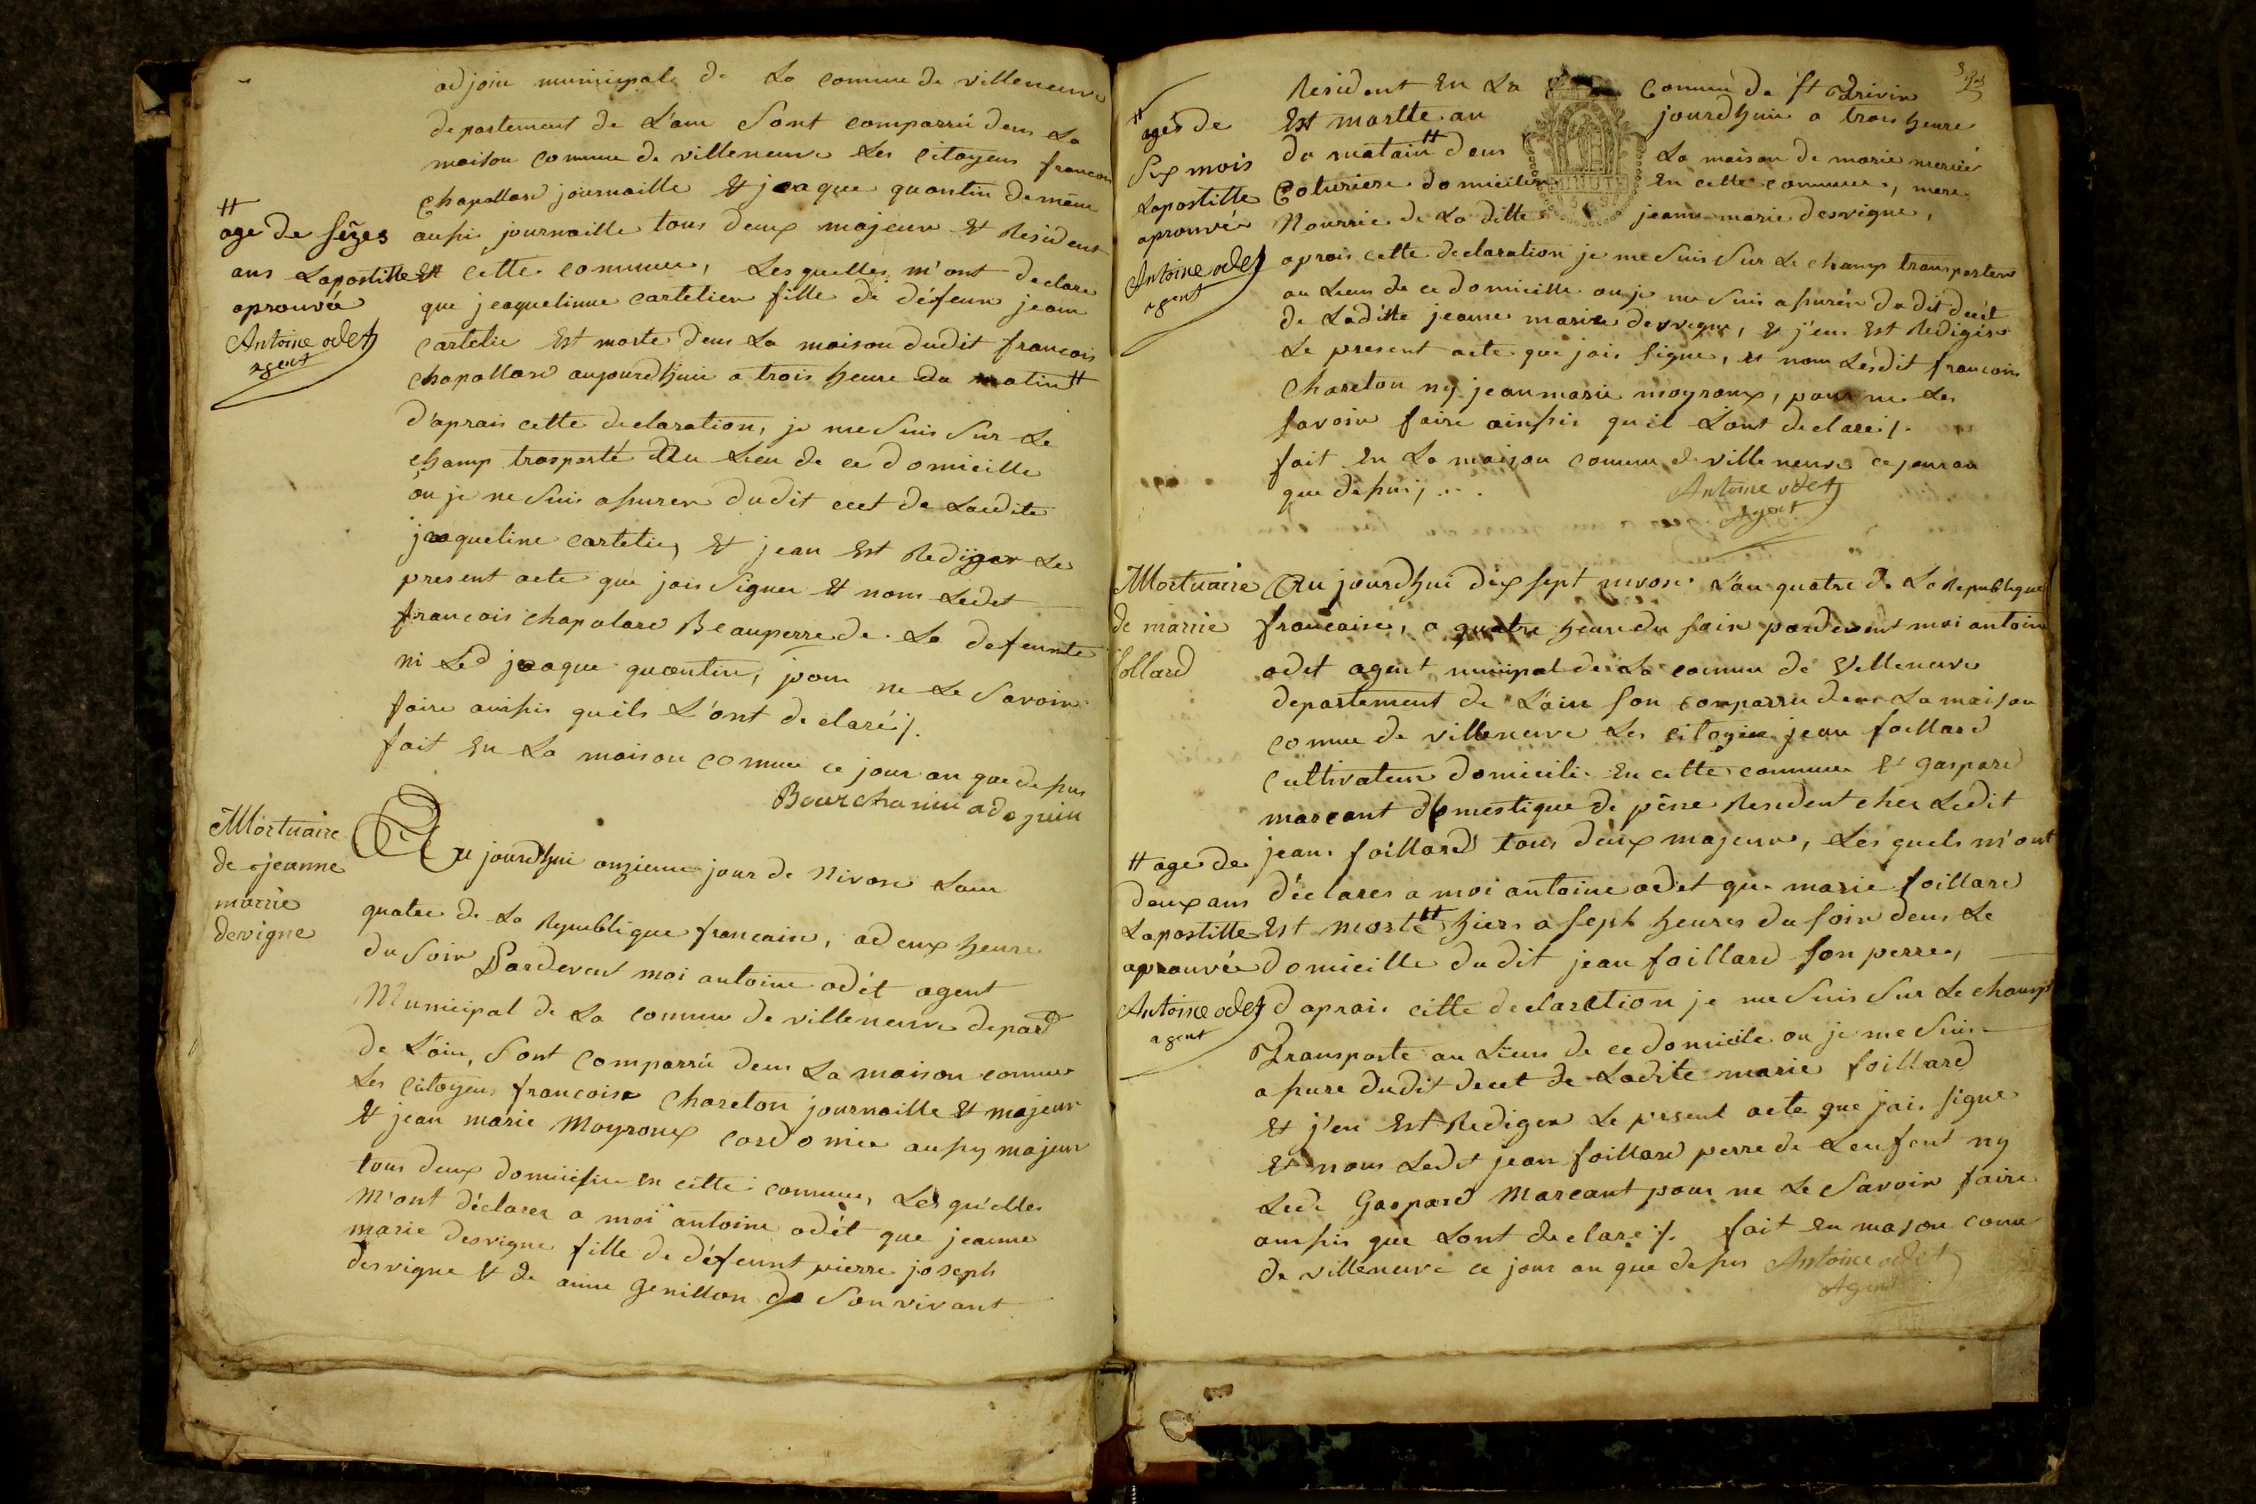 adjoin municipale de la comune de villeneuve
departement de L'ain Sont comparru dens La
maison comune de villeneuve Les Citoyens francois
Chapollard journaille Et jeaque quantin de même
aussi journaille tous deux majeur Et Résident
En cette commune, Lesquelles m'ont declare
que jeaquelinne cartelier fille de défeun jean
cartelie Est morte dens La maison dudit francois
chapollard aujourdhuie a trois heure du matin #
d'aprais cette declaration, je me Suis Sur Le
champ trasporté Au Lieu de ce domicille
ou je me Suis assurer dudit ceet de Laudite
jaqueline cartelie, Et jean Est Rediger Le
present acte que jais Signer Et nom Ledit
francois chapalard Beauperre de La defeunte
ni Led jeaque quantin, pour ne Le Savoir
faire ainssis quils L'ont declaré /.
fait En La maison comune ce jour an que depus
Bourchanin adojuin
#
age de sézes
ans Lapostille
aprouvá
Antoine odet
agent
Mortuaire
de jeanne
marrie
devigne
Au jourdhui onzieme jour de Nivose Lan
quatre de La Republique francaise, a deux heure
du Soir Pardevent moi antoine odét agent
Municipal de La comune de villeneuve depard
de L'ain, Sont comparru dens La maison comune
Les Citoyens francoise Chareton journaille Et majeur
Et jean marie Moyroux cordonnier aussy majeur
tous deux domicilie En cette comune, Lesqu'elles
M'ont déclarer a moi antoine odét que jeanne
marie desvigne fille de défeunt pierre joseph
desvigne Et de anne Genillon de Son vivant
Resident En La Comune de St Trivier
Est mortte au jourdhuie a trois heure
du matain # dens La maison de marie mercier
Coturiere domicilier En cette commune, mere
Nourrice de La ditte jeanne marie desvigne,
aprais cette declaration je me Suis Sur Le champ transporter
au Lieus de ce domicille ou je me Suis assurér dudit deceit
de Laditte jeanne marie desvigne, Et j'en Est Redigér
Le present acte que jais Signe, Et nom Lesdit francois
Chareton ny jean marie moyroux, pour ne Les
savoir faire ainssis qu il L'ont declaré /.
fait En La maison comune de villeneuve ce jour an
que depus, ...
Antoine odet
Agent
#
agés de
Six mois
Lapostille
aprouvée
Antoine odet
agent
Mortuaire
de marrie
follard
Au jourdhui dix sept nivose L'an quatre de La Republique
francaise, a quatre heure du soir pardevent moi antoine
odet agent municipal de La comune de Velleneuve
departement de L'ain son comparru dens La maison
comune de villeneuve Les citoyien jean foillard
Cultivateur domicilie En cette comune Et Gaspard
marcant domestique de pêne Resident cher Ledit
jean foillard tous deux majeur, Les quels m'ont
déclarer a moi antoine odet que marie foillard
Est morte # hiers a sept heures du soir dens Le
domicille dudit jean foillard son perre,
d aprais citte declaration je me Suis Sur Le champs
Transporte au Lieus de ce domicile ou je me Suis
assure dudit deceet de Ladite marie foillard
Et j'en Est Rediger Le present acte que jais signe
Et nom Ledit jean foillard perre de Lenfent ny
Ledi Gaspard Marcant pour ne Le Savoir faire
ainssis que Lont declare /. fait En maison comune
de villeneuve ce jour an que depus Antoine odet
Agent
# age de
deux ans
Lapostille
aprouvée
Antoine odet
agent